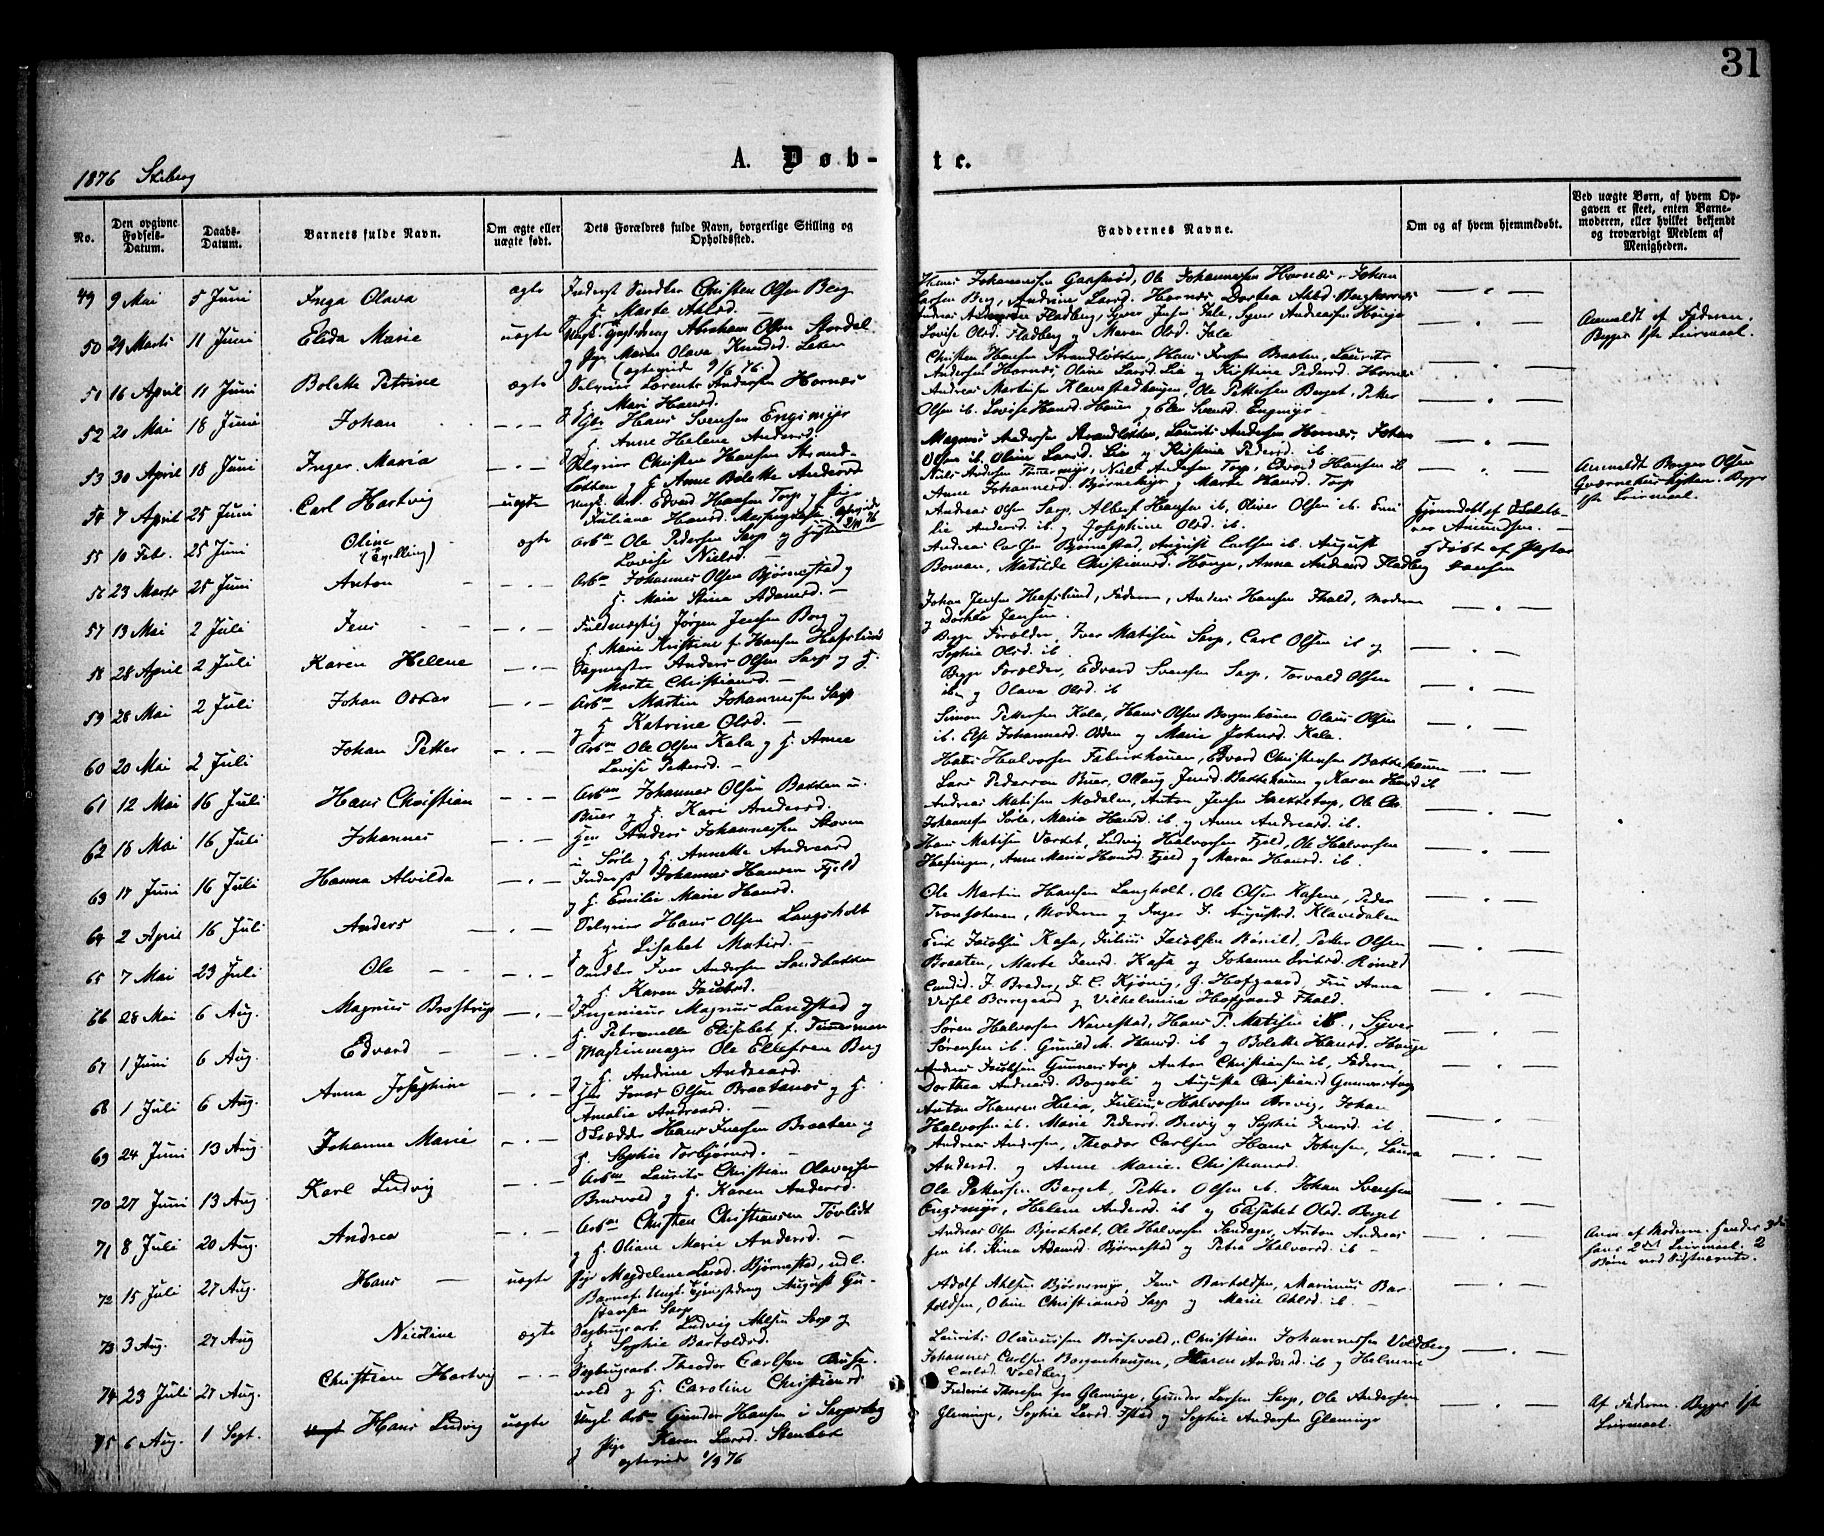 31
A. Døb-
te.
1876 Skiberg
No.
Den opgivne Fødsels-Datum.
Daabs-Datum.
Barnets fulde Navn.
Om ægte eller uægte født.
Dets Forældres fulde Navn, borgerlige Stilling og Opholdssted.
Faddernes Navne.
Om og af hvem hjemmedøbt.
Ved uægte Børn, af hvem Opgaven er skeet, enten Barnemoderen, eller hvilket bekjendt og troværdigt Medlem af Menigheden.
49 9 Mai 5 Juni Inga Olava ægte Inderst Christen Olsen Berg
g H. Marte Ahlsd. —
Hans Johannesen Gaasrød, Ole Johannesen Hornæs, Johan
Larsen Berg, Andrine Larsd. Hornæs Dorthea Ahlsd.
50 29 Marts 11 Juni Elida Marie uægte Ungk. Abraham Olsen Stordal
g Pige Maren Olava Knudsd.
(ægteviet 9/6 76)
Fladberg, Syver Jensen Fale, Syver Andreasen Hauge
Lovise Olsd. Fladberg g Maren Olsd. Fale
Anmeldt af Faderen.
Begges 1ste Leirmaal.
51 16 April 11 Juni Bolette Petrine ægte Selveier Lorents Andersen Hornæs
g H. Mari Hansd.
Christen Hansen Strandløkken, Hans Braaten, Laurits
Andersen Hornæs, Oline Larsd. Lie g Kristine Pedersd. Hornæs
52 20 Mai 18 Juni Johan — " — Hans Svensen Engsmyr
g H. Anne Helene Andersd.
Andreas Martinsen Klavestadhaugen, Ole Pettersen Berget, Petter
Olsen ib. Lovise Hansd.
53 30 April 18 Juni Inger Maria — " — Selveier Christen Hansen Strand-
løkken g H. Anne Bolette Andersd
Magnus Andersen Strandløkken, Laurits Andersen Hornæs, Johan
Olsen ib. Oline Larsd. Lie g Kristine Pedersd. ib.
54 7 April 25 Juni Carl Hartvig uægte Ungk. Arb. Edvard Hansen Torp g Pige
Juliane Hansd.
Niels Andersen Tømmermyr, Niels Andersen Torp, Edvard Hansen ib
Anne Johannesd. Bjørnemyr g Marte Hansd. Torp
Anmeldt Borger Olsen
Begges
1ste Leirmaal.
55 10 Febr. 25 Juni Oline
(Tvilling)
ægte Arbm Ole Pedersen Sarp g Hustru
Lovise Nielsd. —
Andreas Olsen Sarp, Albert Hansen ib, Oliver Olsen ib. Emi
lie Andersd. ib g Josephine Olsd. ib.
Hjemmedøbt af
Amundsen.
56 23 Marts 25 Juni Anton — " — Arbm Johannes Olsen Bjørnestad g
H. Maia Stina Adamsd. —
Andreas Carlsen Bjørnestad, August Carlsen ib. August
Boman, Matilde Christiansd. Hauge, Anna Andreasd Fladberg
Døbt af Pastor
57 13 Mai 2 Juli Jens — " — Fuldmægtig Jørgen Jensen Borg g
H. Marie Kristine f. Hansen Hafslund
Johan Jensen Hafslund, Faderen, Anders Hansen Ihald, Moderen
g Dorthea Jensen.
58 28 April 2 Juli Karen Helene — " — Sagmester Anders Olsen Sarp g H.
Marte Christiansd. —
Begge Forældre, Iver Matisen Sarp, Carl Olsen ib g
Sophie Olsd. ib.
59 28 Mai 2 Juli Johan Oskar — " — Arbm Martin Johannesen Sarp
g H. Katrine Olsd. —
Begge Forældre, Edvard Svensen Sarp, Torvald Olsen
ib g Olava Olsd. ib
60 20 Mai 2 Juli Johan Petter — " — Arbm Ole Olsen Kala g H. Anne
Lovise Pettersd. —
Simon Pettersen Kala, Hans Olsen Borgenhauen Olaus Olsen
ib. Else Johannesd. Odden g Marie Johnsd. Kala.
61 12 Mai 16 Juli Hans Christian — " — Arbm Johannes Olsen Bakken u.
Buer g H. Kari Andersd.
Hans Halvorsen Fabrikhauen, Edvard Christensen Bakkehauen
Lars Pedersen Buer, Jensd. Bakkehauen g Karen Hansd ib
62 18 Mai 16 Juli Johannes — " — Anders Johannessen
u Sørle g H. Annette Andreasd
Andreas Matisen Modalen, Anton Jensen
Johannesen Sørle, Maria Hansd. ib. g Anne Andreasd. ib.
63 17 Juni 16 Juli Hanna Alvilda — " — Inderst Johannes Hansen Fjeld
g H. Emilie Marie Hansd.
Hans Matisen Ludvig Halvorsen Fjeld, Ole Halvorsen
Anne Maria Hansd. Fjeld g Maren Hansd. ib.
64 2 April 16 Juli Anders — " — Selveier Hans Olsen Langsholt
g H. Lisabet Matisd. —
Ole Martin Hansen Langholt, Ole Olsen Peder
Moderen g Inger J. Augustsd. Klavedalen
65 7 Mai 23 Juli Ole — " — Iver Andersen Sandbakken
g H. Karen Jacobsd.
Jacobsen Kasa, Julius Jacobsen Petter Olsen
Braaten, Marte Jensd. Kasa g Johanne
66 28 Mai 6 Aug. Magnus Brostrup — " — Ingeniør Magnus Landstad g
H. Petronelle Elisabet f. Timmerman
Candid. J. Brader, J. C. Kjønig, G. Hofgaard, Fru Anna
g Vilhelmine Hofgaard Ihald.
67 1 Juni 6 Aug. Edvard — " — Maskinmager Ole Ellefsen Berg
g H. Andrine Andreasd.
Søren Halvorsen Navestad, Hans P. Matisen ib., Syver
Sørensen ib. Gunild M. Hansd. ib g Bolette Hansd. Hauge
68 1 Juli 6 Aug. Anna Josephine — " — Jonas Olsen g H.
Amalia Andreasd. —
Andreas Jacobsen Gunnerstorp Anton Christiansen ib, Faderen,
Dorthea Andreasd. Borgerli g Auguste Christiansd Gunnerstorp
69 24 Juni 13 Aug. Johanne Marie — " — Hans Iversen Braaten g
H. Sophie Torbjørnsd. —
Anton Hansen Heia, Julius Halvorsen Brevig, Johan
Halvorsen ib. Marie Pedersd. Brevig g Sophie Iversd. ib.
70 27 Juni 13 Aug. Karl Ludvig — " — Arbm Laurits Christian Olavesen
Brusevold g H. Karen Andersd.
Andreas Andersen, Theodor Carlsen Hans Johnsen, Laura
Andersd. g Anne Marie Christiansd.
71 8 Juli 20 Aug. Andrea — " — Arbm Christen Christiansen Tøvlidt
g H. Oliane Marie Andersd. —
Ole Pettersen Berget, Petter Olsen ib. Johan Svensen
Engsmyr, Helene Andersd. ib g Elisabet Olsd. Berget
72 15 Juli 27 Aug. Hans — uægte Pige Magdelene Larsd. Bjørnestad, udl.
Barnef. Ungk. August Gu-
stavsen Sarp
Andreas Olsen Bjørnholt, Ole Halvorsen Andreas
sen ib. Kina Adamsd. Bjørnestad g Petra Halvorsd. ib —
Anm. af Moderen. hendes 3die
hans 2det Leirmaal. 2
73 3 Aug. 27 Aug Nicoline ægte Sagbrugsarb. Ludvig Ahlsen Sarp g
H. Sophie Bartoldsd.
Adolf Ahlsen Bjørnemyr, Jens Bartoldsen, Marinius Bar
toldsen, Oline Christiansd Sarp g Marie Ahlsd. ib. —
74 23 Juli 27 Aug. Christian Hartvig — " — Sagbrugsarb. Theodor Carlsen Bruse-
vold g H. Caroline Christiansd
Laurits Olaveussen Brusevold, Christian Johannessen Voldberg
Johannes Carlsen Borgenhaugen, Karen Andersd. ib g Helmine
Carlsd. Voldberg.
75 6 Aug. 1 Sept. Hans Ludvig uægte Ungk. Arbm Gunder Hansen i
g Pige Karen Larsd. Stenbek
ægteviet 1/9 76
Frederik Thoresen fra Glemminge, Gunder Larsen Sarp, Ole Andersen
Glemminge, Sophie Larsd. g Sophie Andersen Glemminge
Af Faderen. Begges 1ste
Leirmaal.